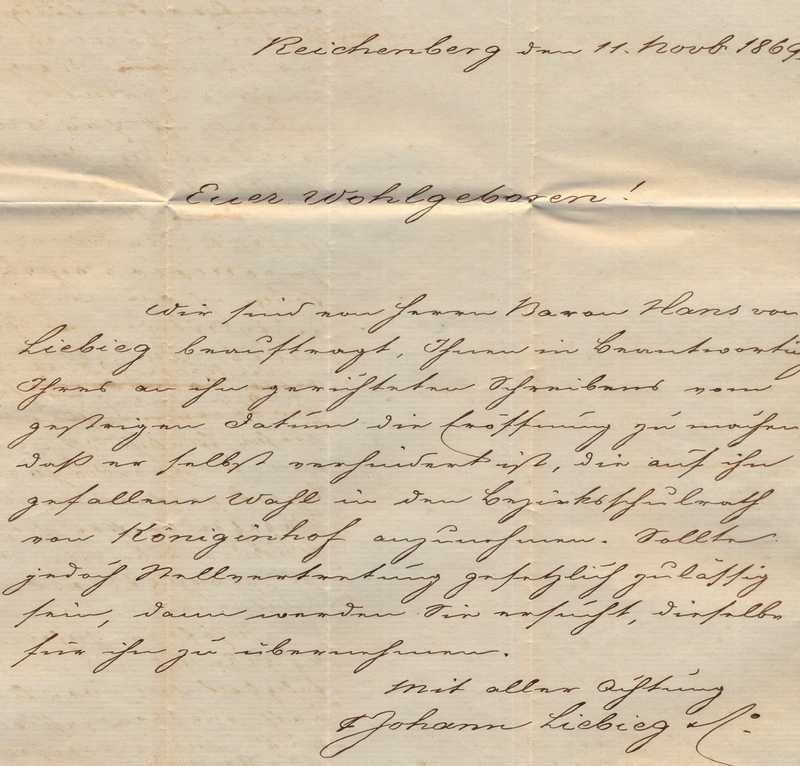 Reichenberg den 11. Novb 1869
Euer Wohlgeboren!
Wir sind von Herrn Baron Hans von
Liebieg beauftragt, Ihnen in Beantwortung
Ihres an ihn gerichteten Schreibens vom
gestrigen Datum die Eröffnung zu machen
daß er selbst verhindert ist, die auf ihn
gefallene Wahl in den Bezirksschulrath
von Königinhof anzunehmen. Sollte
jedoch Stellvertretung gesetzlich zulässig
sein, dann werden Sie ersucht, dieselbe
für ihn zu übernehmen.
Mit aller Achtung
Johann Liebieg & Co.